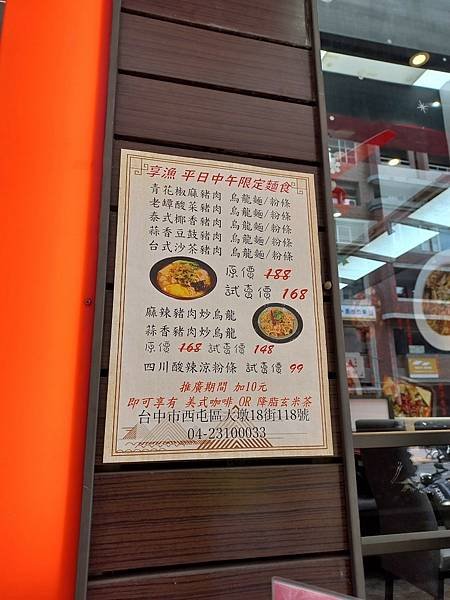 享漁 平日中午限定麵食
青花椒麻豬肉 烏龍麵/粉條
老罈酸菜豬肉 烏龍麵/粉條
泰式椰香豬肉 烏龍麵/粉條
蒜香豆豉豬肉 烏龍麵/粉條
台式沙茶豬肉 烏龍麵/粉條
原價 188
試賣價 168
麻辣豬肉炒烏龍
蒜香豬肉炒烏龍
原價 168 試賣價 148
四川酸辣涼粉條 試賣價 99
推廣期間 加10元
即可享有 美式咖啡 OR 降脂玄米茶
台中市西屯區大墩18街118號
04-23100033